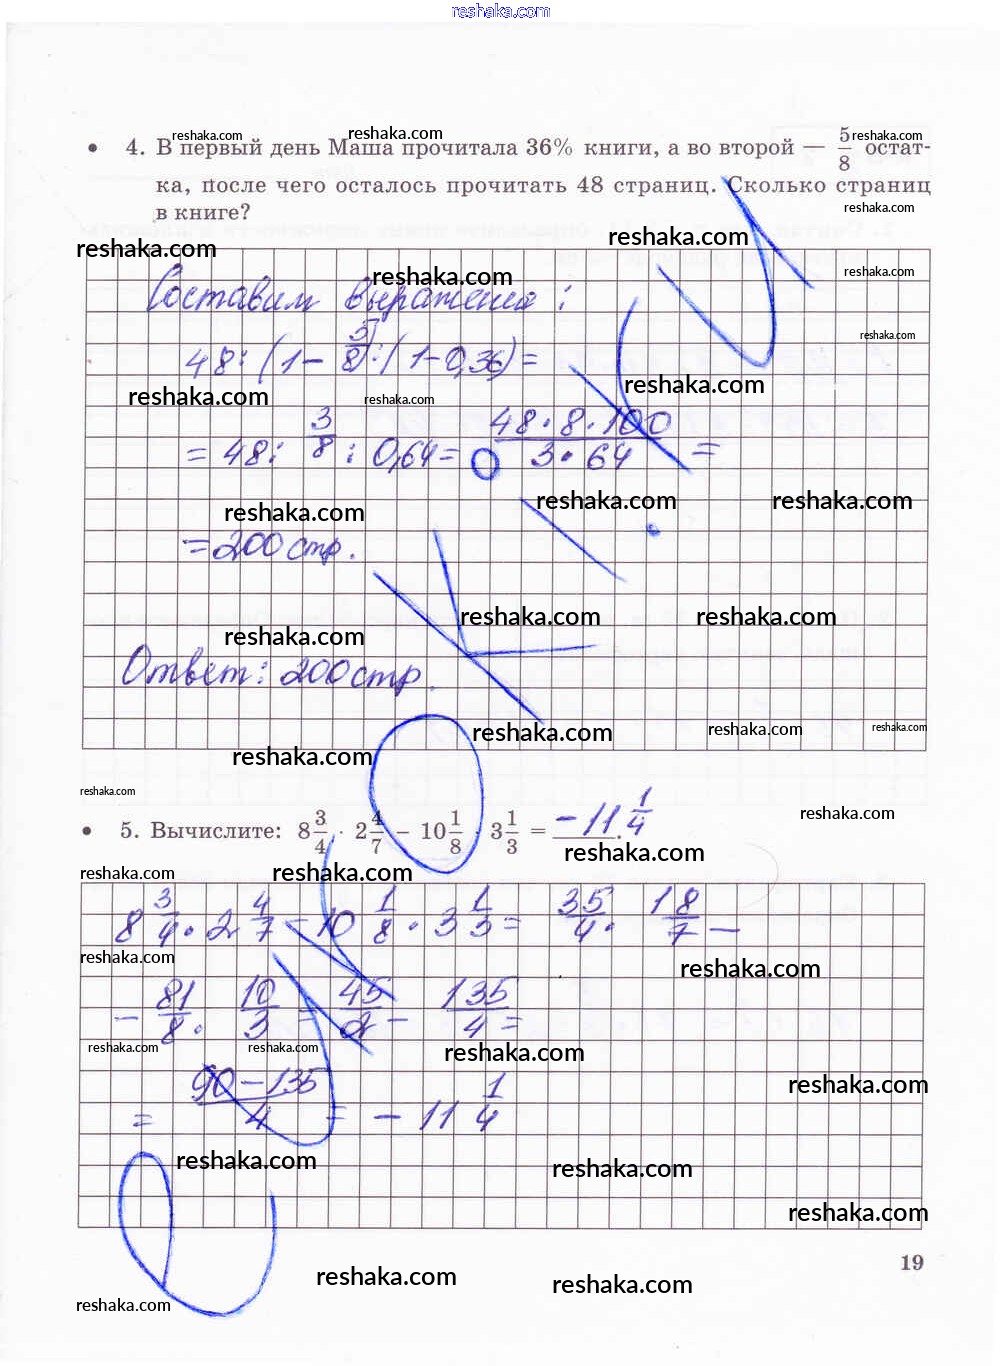 reshaka.com
reshaka.com reshaka.com reshaka.com
4. В первый день Маша прочитала 36% книги, а во второй — 5/8 остат-
ка, после чего осталось прочитать 48 страниц. Сколько страниц
в книге?
reshaka.com
reshaka.com reshaka.com
Составим выражение:
reshaka.com reshaka.com
reshaka.com
48 : (1 - 5/8) : (1 - 0,36) =
reshaka.com reshaka.com reshaka.com
= 48 : 3/8 : 0,64 = 48 · 8 · 100 / 3 · 64 =
reshaka.com reshaka.com reshaka.com
= 200 стр.
reshaka.com reshaka.com reshaka.com
Ответ: 200 стр.
reshaka.com reshaka.com reshaka.com reshaka.com
reshaka.com reshaka.com
5. Вычислите: 8 3/4 · 2 4/7 − 10 1/8 · 3 1/3 = -11 1/4.
reshaka.com reshaka.com reshaka.com
8 3/4 · 2 4/7 - 10 1/8 · 3 1/3 = 35/4 · 18/7 -
reshaka.com reshaka.com
- 81/8 · 10/3 = 45/2 - 135/4 =
reshaka.com reshaka.com reshaka.com
= 90 - 135 / 4 = - 11 1/4
reshaka.com
reshaka.com reshaka.com
reshaka.com
19
reshaka.com reshaka.com reshaka.com